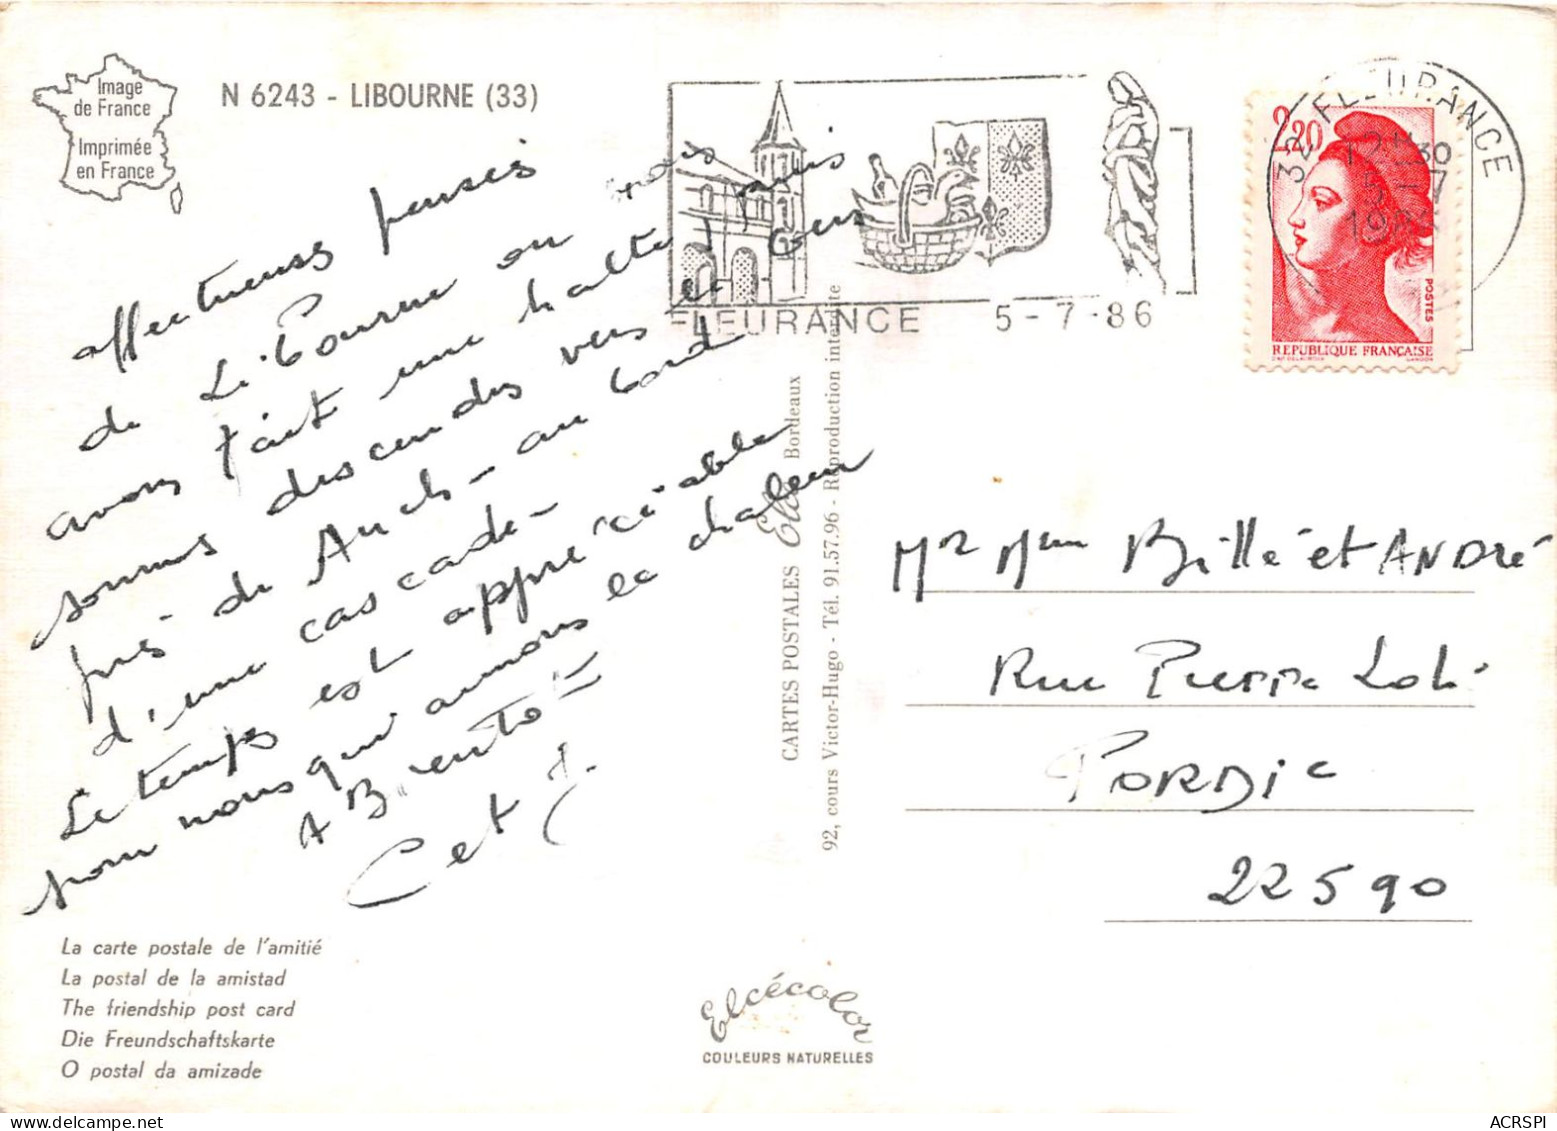 Image
de France
Imprimée
en France
N 6243 - LIBOURNE (33)
affectueuses pensées
de Libourne ou nous
avons fait une halte, puis
sommes descendus vers le Gers
près de Auch - au bord
d'une cascade -
Le temps est appréciable
pour nous qui aimons la chaleur
A Bientôt -
C et J.
La carte postale de l'amitié
La postal de la amistad
The friendship post card
Die Freundschaftskarte
O postal da amizade
CARTES POSTALES Elcé Bordeaux
92, cours Victor-Hugo - Tél. 91.57.96 - Reproduction interdite
Elcécolor
COULEURS NATURELLES
FLEURANCE 5-7-86
32 FLEURANCE
12H30
5-7
1986
2,20
POSTES
REPUBLIQUE FRANÇAISE
Mr Mme Billé et ANDRé
Rue Pierre Loti
PORDIC
22590
ACRSPI